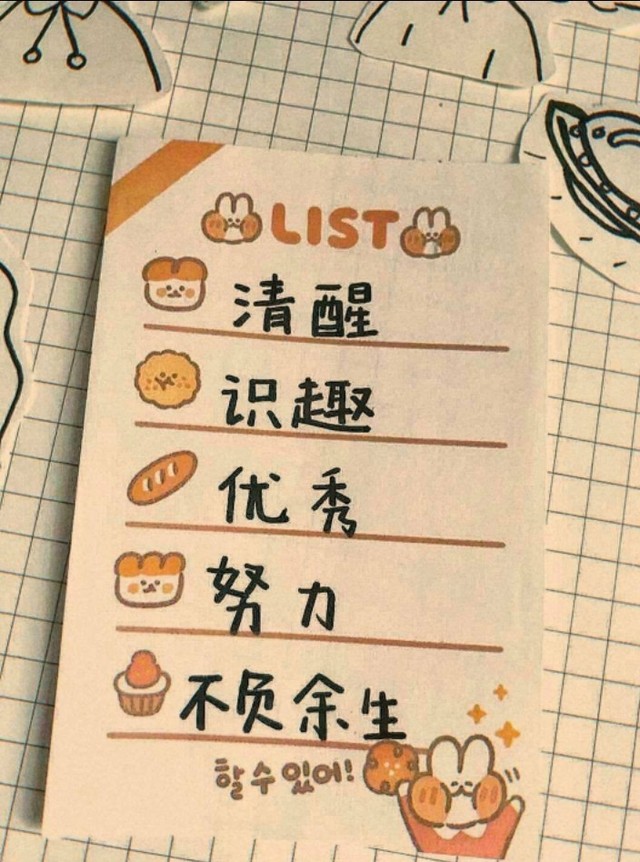 LIST
清醒
识趣
优秀
努力
不负余生
할 수 있어!